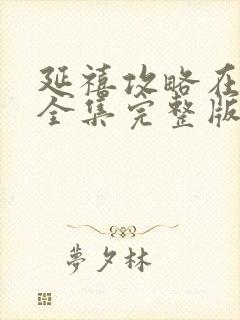 延禧攻略在
全集完整版
夢夕林